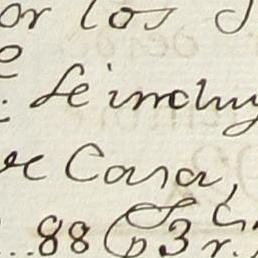 or los
Se incluy
de Casa,
88 p 3 r.